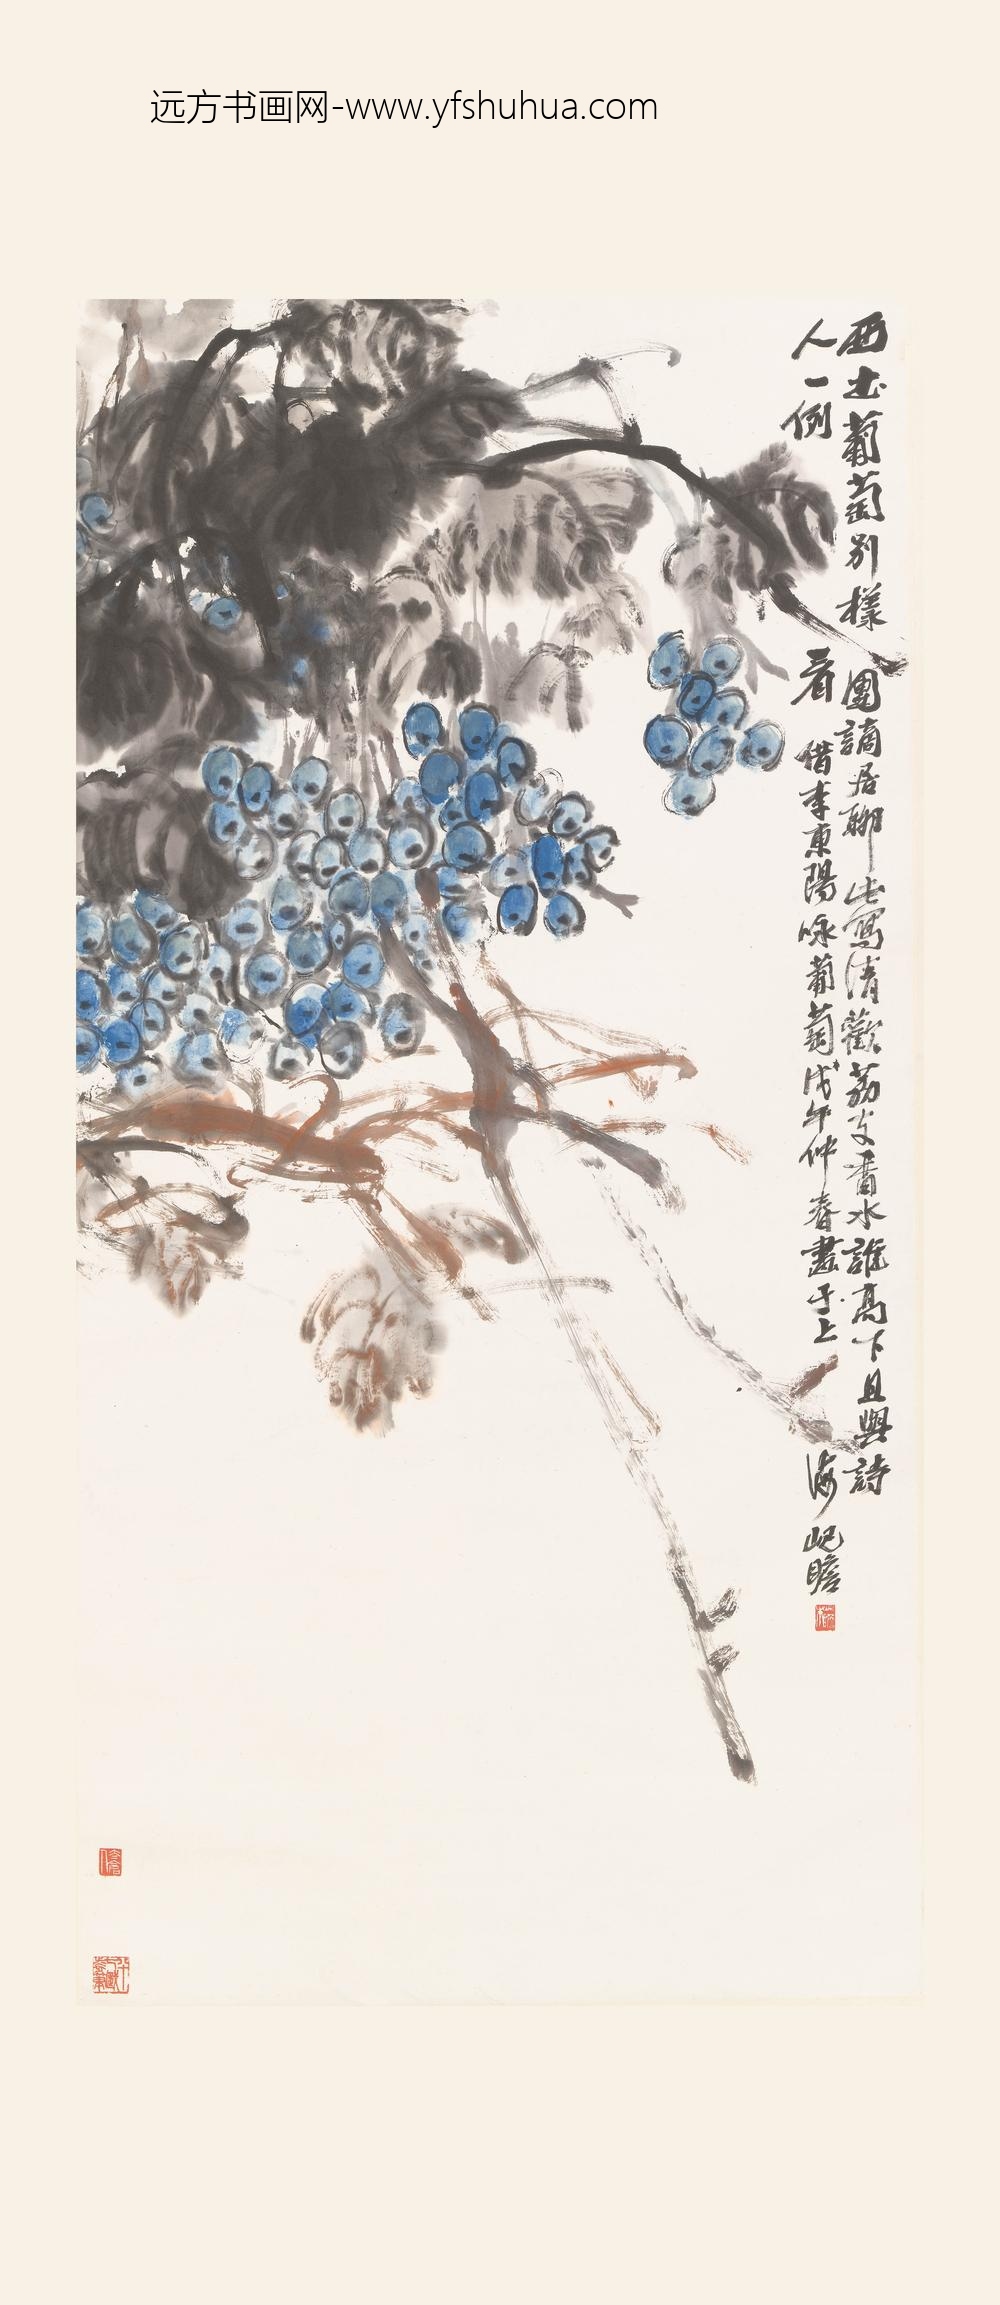 远方书画网-www.yfshuhua.com
西土葡萄别樣團謫居聊此寫清歡荔支香水誰高下且與詩
人一例看借李東陽咏葡萄戊午仲春畫于上海屺瞻